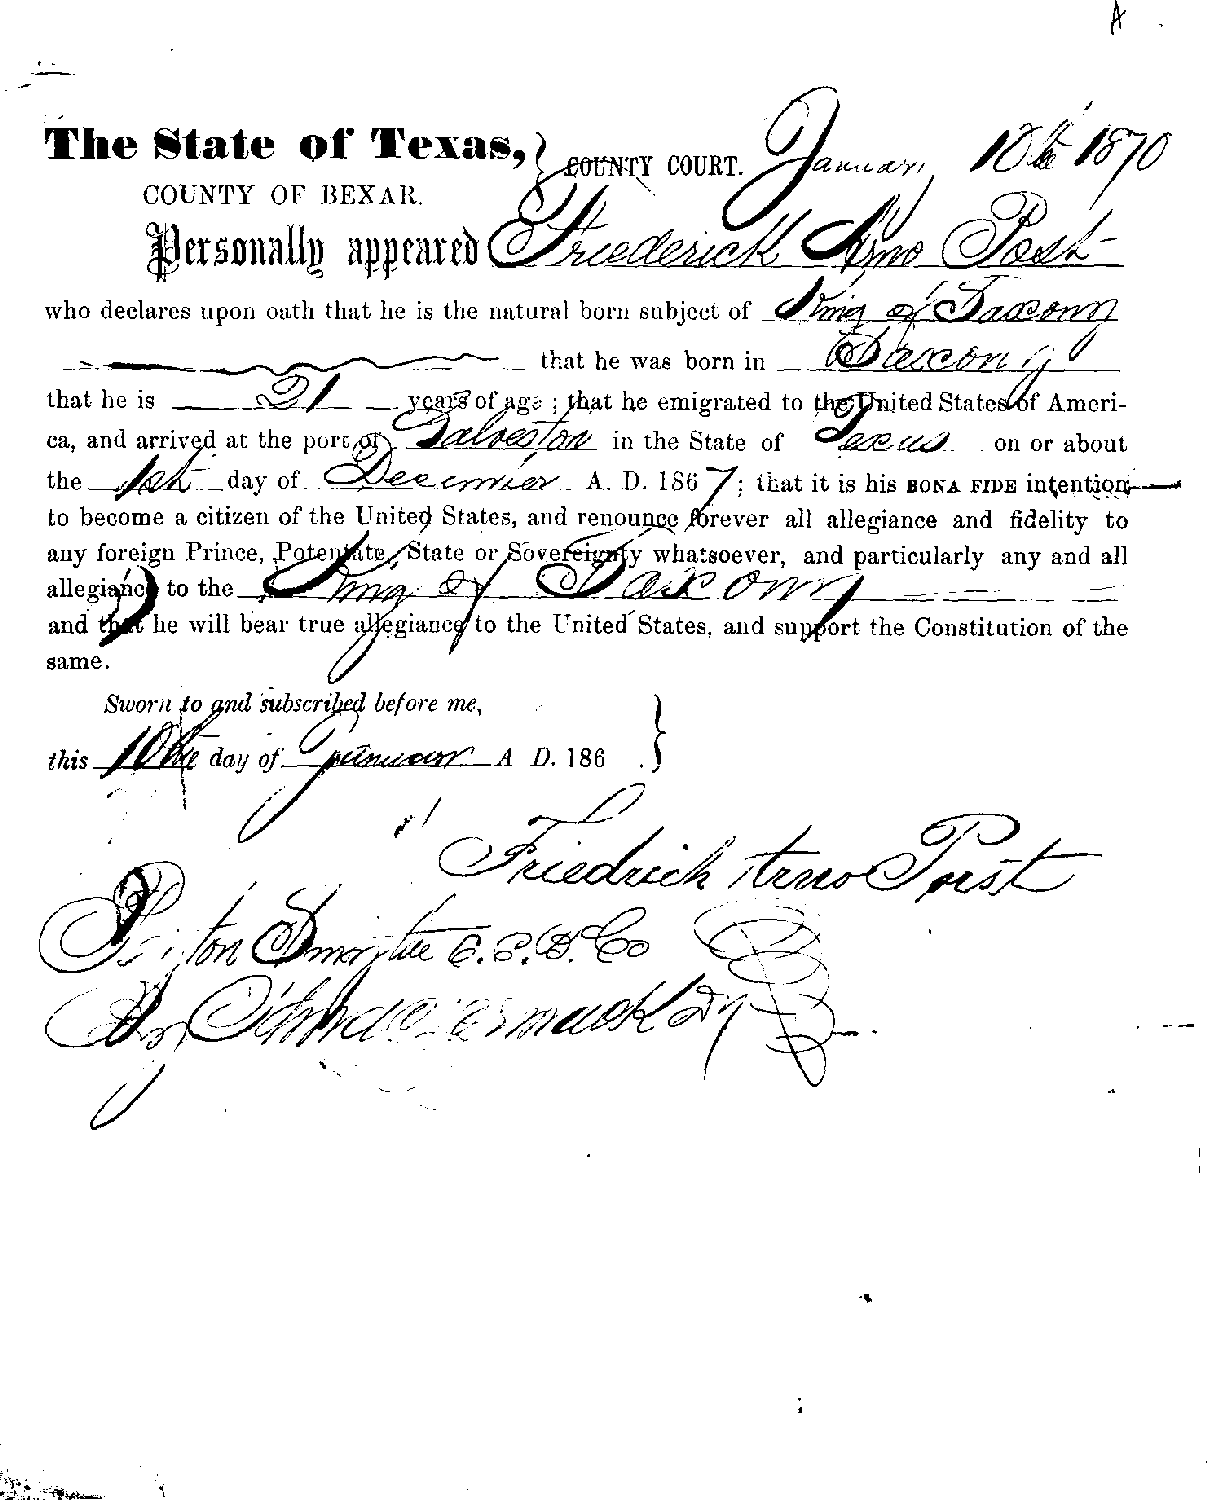 A
The State of Texas, } COUNTY COURT. January 10th 1870
COUNTY OF BEXAR.
Personally appeared Friederick Arno Post
who declares upon oath that he is the natural born subject of King of Saxony
that he was born in Saxony
that he is 21 years of age; that he emigrated to the United States of Ameri-
ca, and arrived at the port of Galveston in the State of Texas on or about
the 1st day of December A. D. 1867; that it is his BONA FIDE intention
to become a citizen of the United States, and renounce forever all allegiance and fidelity to
any foreign Prince, Potentate, State or Sovereignty whatsoever, and particularly any and all
allegiance to the King of Saxony
and that he will bear true allegiance to the United States, and support the Constitution of the
same.
Sworn to and subscribed before me,
this 10th day of January A D. 186 }
Friedrich Arno Porst
Smythe C.C.B.Co
By Dy